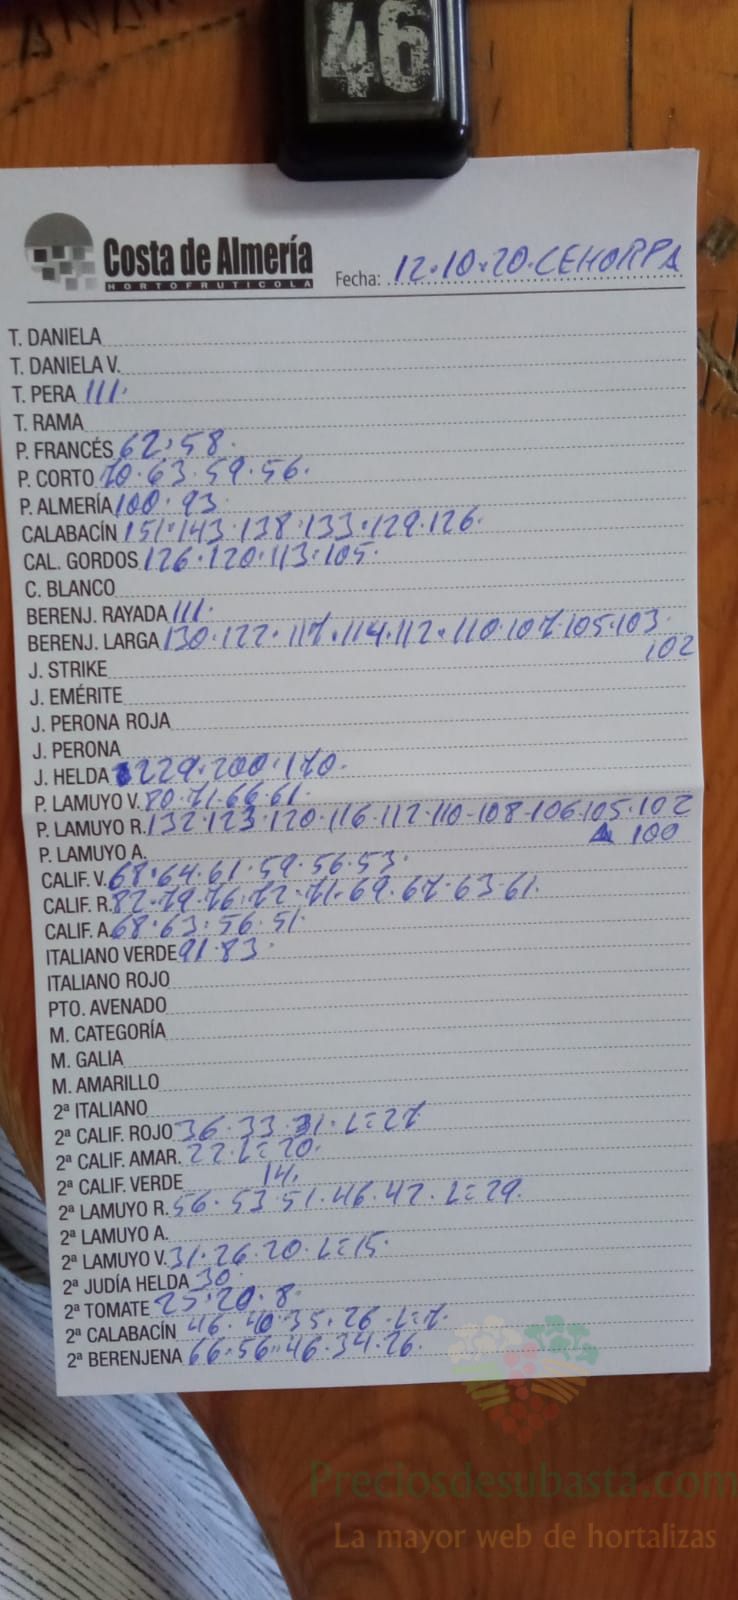 46
Costa de Almería
HORTOFRUTICOLA
Fecha: 12·10·20·CEHORPA
T. DANIELA
T. DANIELA V.
T. PERA 111·
T. RAMA
P. FRANCÉS 62·58·
P. CORTO 70·63·59·56·
P. ALMERÍA 100·93
CALABACÍN 151·143·138·133·129·126·
CAL. GORDOS 126·120·113·105·
C. BLANCO
BERENJ. RAYADA 111·
BERENJ. LARGA 130·122·117·114·112·110·107·105·103
102
J. STRIKE
J. EMÉRITE
J. PERONA ROJA
J. PERONA
J. HELDA 229·200·170·
P. LAMUYO V. 80·71·66·61·
P. LAMUYO R. 132·123·120·116·112·110-108-106·105·102
100
P. LAMUYO A.
CALIF. V. 68·64·61·59·56·53·
CALIF. R. 82·79·76·72·71·69·67·63·61·
CALIF. A. 68·63·56·51
ITALIANO VERDE 91·83·
ITALIANO ROJO
PTO. AVENADO
M. CATEGORÍA
M. GALIA
M. AMARILLO
2ª ITALIANO
2ª CALIF. ROJO 36·33·31·L=27
2ª CALIF. AMAR. 22·L=20·
2ª CALIF. VERDE 14·
2ª LAMUYO R. 56·53·51·46·42·L=29·
2ª LAMUYO A.
2ª LAMUYO V. 31·26·20·L=15·
2ª JUDÍA HELDA 30·
2ª TOMATE 25·20·8·
2ª CALABACÍN 46·40·35·26·L=7·
2ª BERENJENA 66·56·46·34·26·
Preciosdesubasta.com
La mayor web de hortalizas